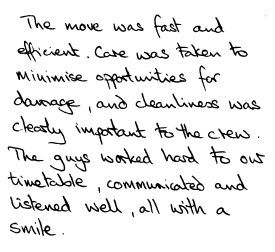 The move was fast and
efficient. Care was taken to
minimise opportunities for
damage, and cleanliness was
clearly important to the crew.
The guys worked hard to our
timetable, communicated and
listened well, all with a
smile.